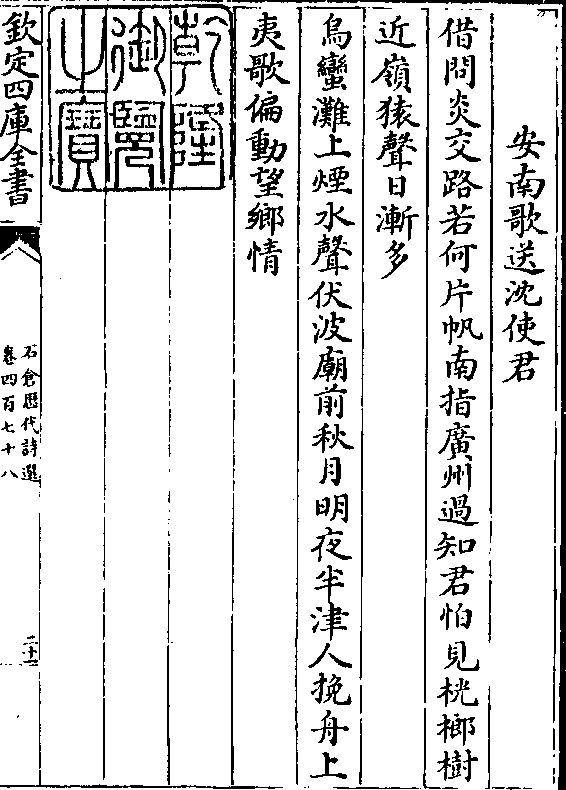 安南歌送沈使君
借問炎交路若何片帆南指廣州過知君怕見桄榔樹
近嶺猿聲日漸多
烏蠻灘上煙水聲伏波廟前秋月明夜半津人挽舟上
夷歌偏動望鄉情
乾隆御覽之寶
欽定四庫全書
石倉歷代詩選
卷四百七十八
二十一